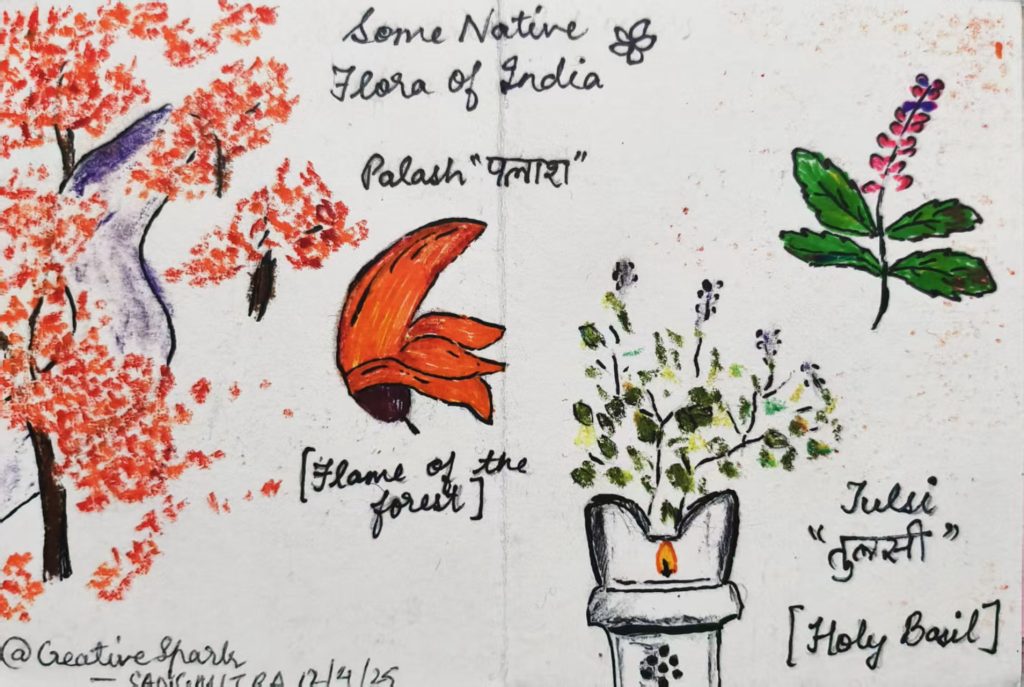 Some Native
Flora of India
Palash "पलाश"
[Flame of the
forest]
Tulsi
"तुलसी"
[Holy Basil]
@CreativeSpark
12/4/25